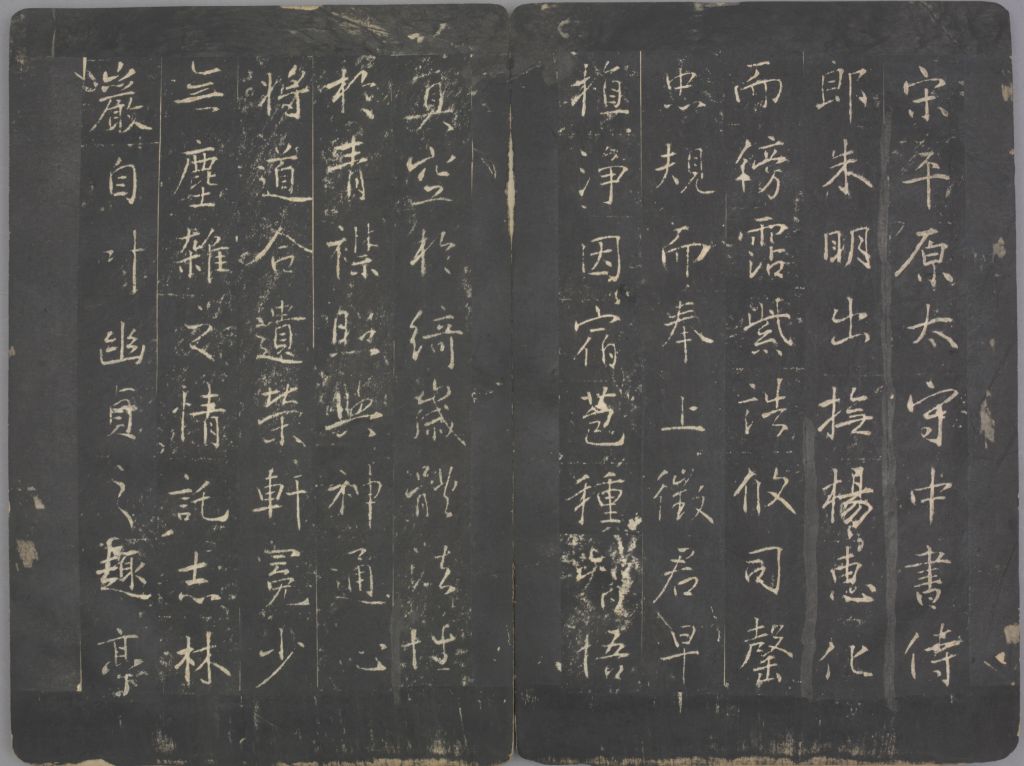 宋平原太守中書侍
郎朱明出撫楊惠化
而傍霑紫誥攸司罄
忠規而奉上徵君早
稙淨因宿苞種智悟
真空於綺歲體法性
於青襟照與神通心
將道合遺榮軒冕少
無塵雜之情託志林
巖自叶幽貞之趣